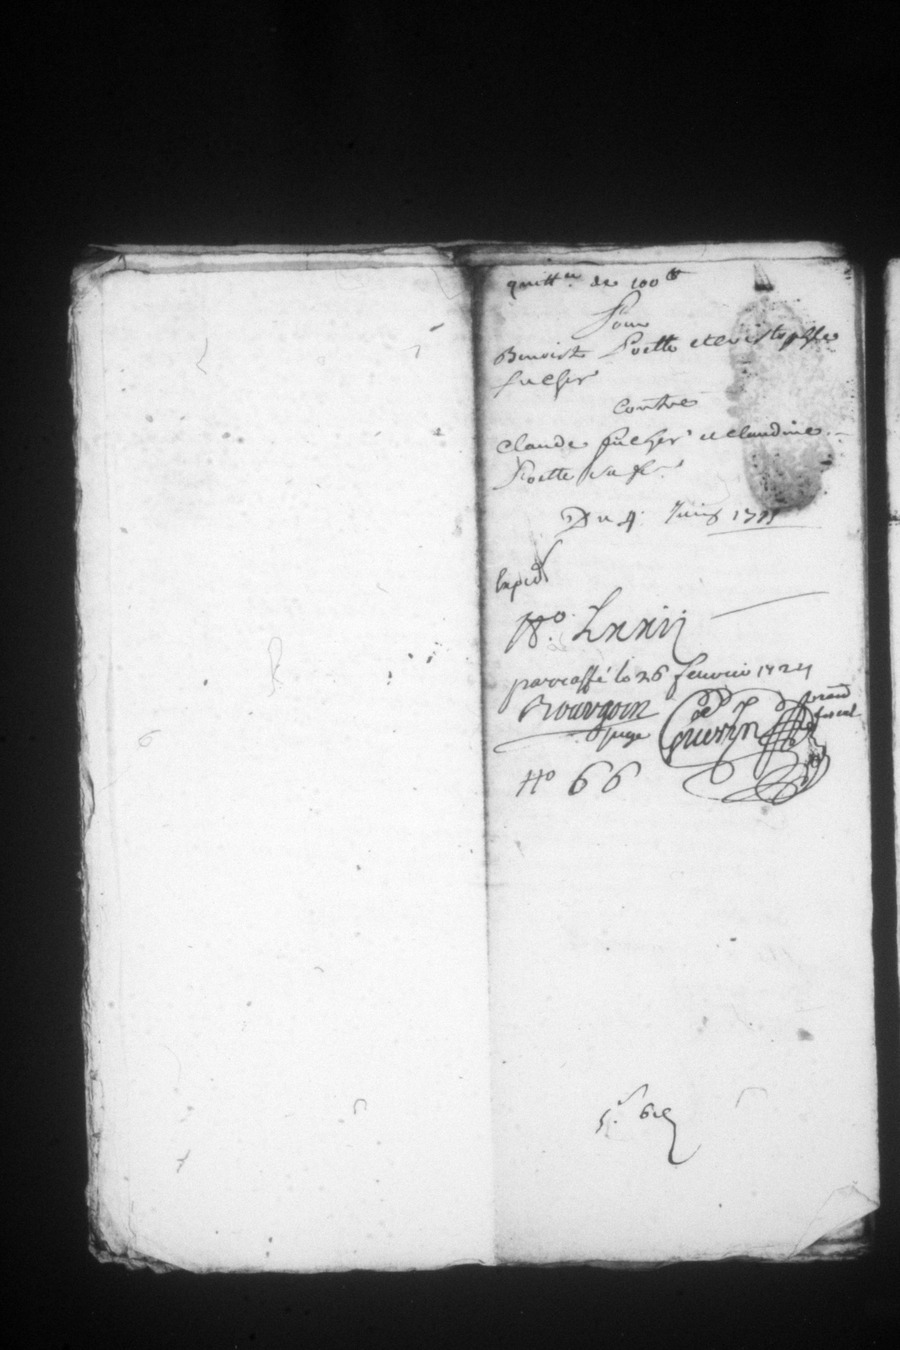 quitt.ce de 100 ₶
Pour
Benoist Poette et christophle
fucher
Contre
Claude fucher et Claudine
Poette sa fe.
Du 4. Juin
Expéd
N.o Lxxii
parraffé le 26 fevrier 1724
Bourgoin
juge
de
Guerin
fiscal
No 66